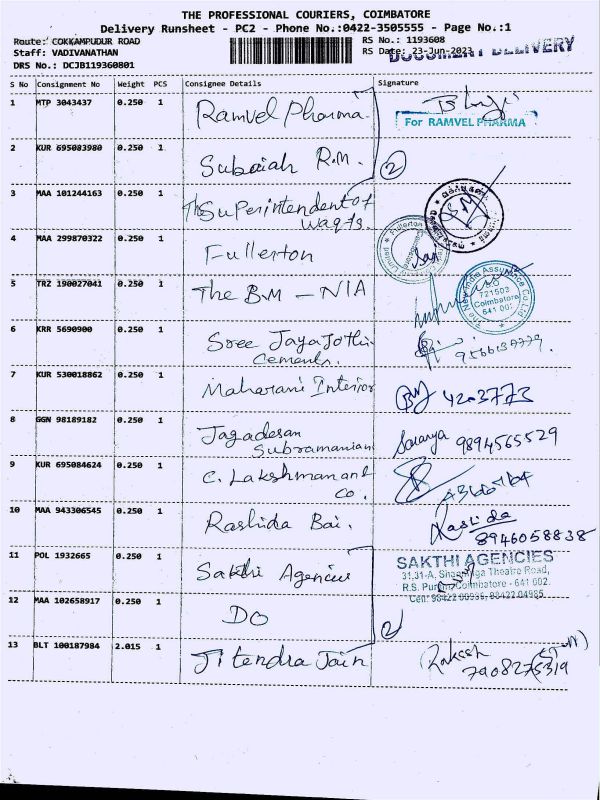 THE PROFESSIONAL COURIERS, COIMBATORE
Delivery Runsheet - PC2 - Phone No.:0422-3505555 - Page No.:1
Route: COKKAMPUDUR ROAD
RS No.: 1193608
Staff: VADIVANATHAN
RS Date: 23-Jun-2023
DOCUMENT DELIVERY
DRS No.: DCJB119360801
S No Consignment No Weight PCS Consignee Details Signature
1 MTP 3043437 0.250 1 Ramvel Pharma
For RAMVEL PHARMA
2 KUR 695083980 0.250 1 Subaiah R.M. 2
3 MAA 101244163 0.250 1 The Superintendent of
Waqfs.
4 MAA 299870322 0.250 1 Fullerton
5 TRZ 190027041 0.250 1 The B.M - NIA
The New India Assurance Co. Ltd.
721503
Coimbatore
641 001
6 KRR 5690900 0.250 1 Sree Jaya Jothi
Cements.
7 KUR 530018862 0.250 1 Maharani Interior 4203773
8 GGN 98189182 0.250 1 Jagadesan
Subramanian
Saranya 9894565529
9 KUR 695084624 0.250 1 C. Lakshmanan &
Co.
10 MAA 943306545 0.250 1 Rashida Bai.
Rashida
8946058838
11 POL 1932665 0.250 1 Sakthi Agencies
SAKTHI AGENCIES
31,31-A, Theatre Road,
R.S. Puram, Coimbatore - 641 002.
Cell: 98422 00936, 98422 04985
12 MAA 102658917 0.250 1 DO 2
13 BLT 100187984 2.015 1 Jitendra Jain
Rakesh
7908275319